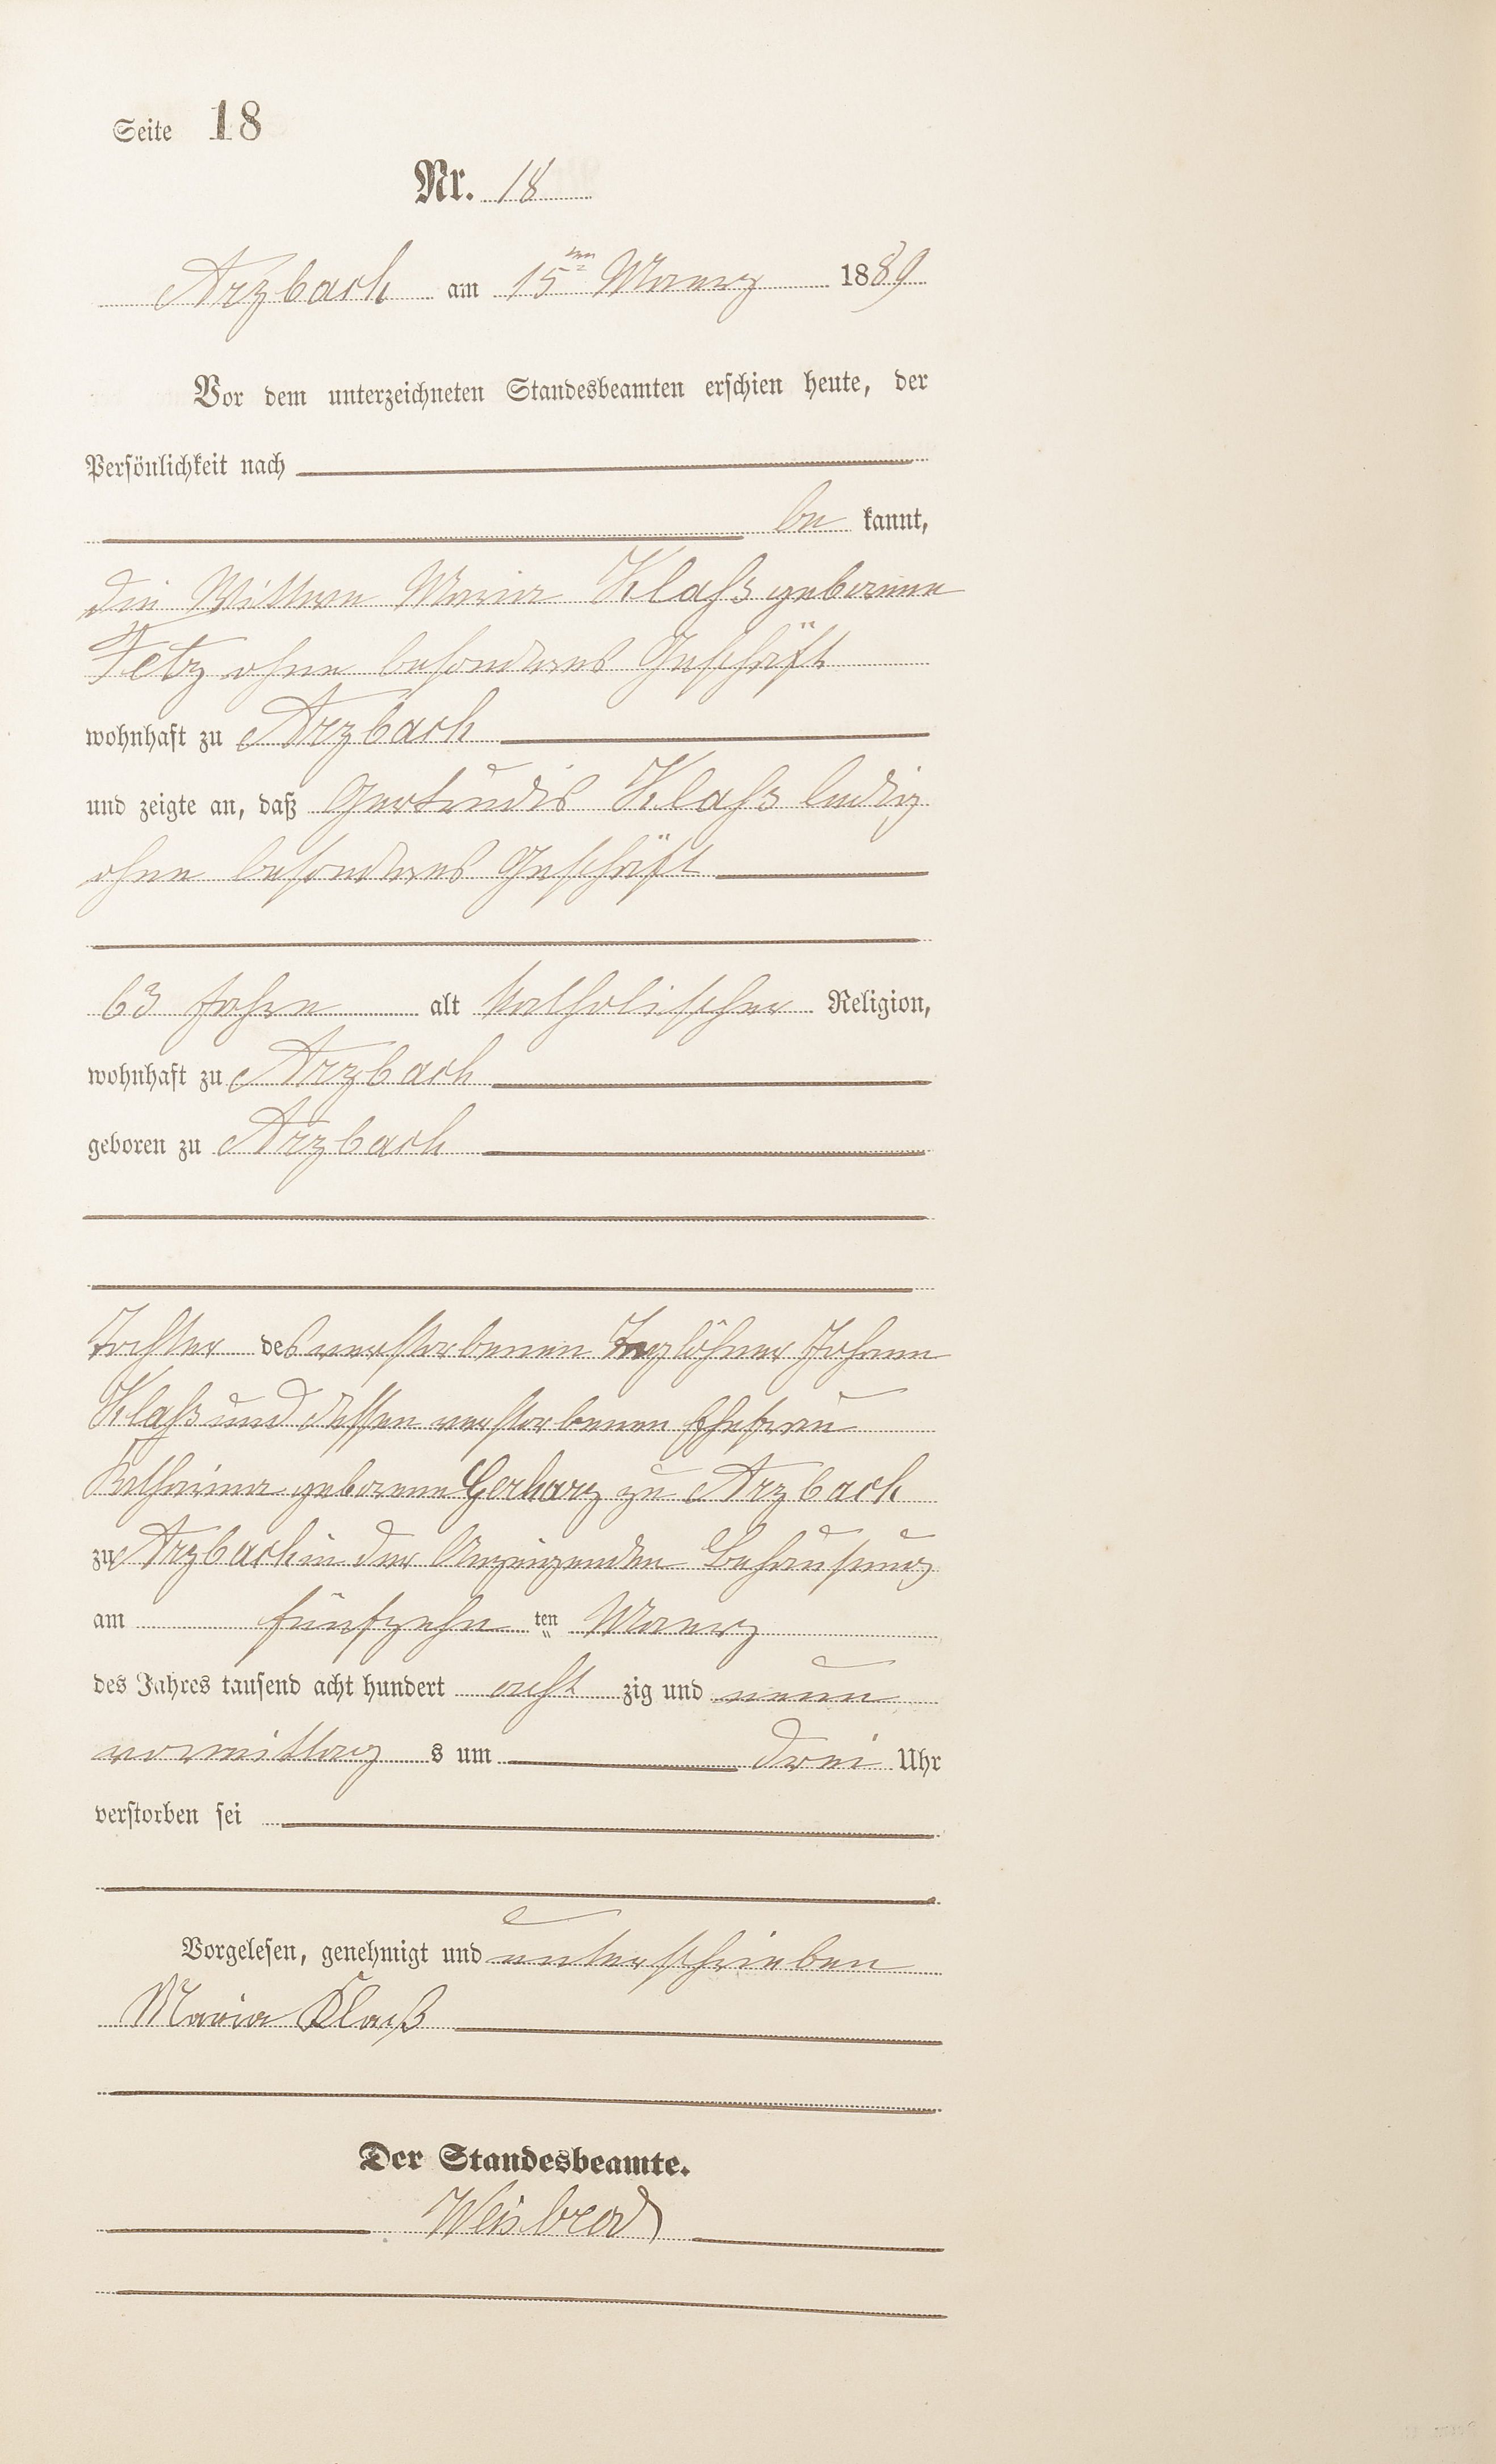 Seite 18
Nr. 18
Arzbach am 15ten Maerz 1889
Vor dem unterzeichneten Standesbeamten erschien heute, der
Persönlichkeit nach
be kannt,
die Wittwe Maria Klaß geborene
Fetz ohne besonderes Geschäft
wohnhaft zu Arzbach
und zeigte an, daß Gertrudis Klaß ledig
ohne besonderes Geschäft
63 Jahre alt katholischer Religion,
wohnhaft zu Arzbach
geboren zu Arzbach
Tochter des verstorbenen Taglöhner Johann
Klaß und dessen verstorbenen Ehefrau
Katharina geborene Gerharz zu Arzbach
zu Arzbach in der Anzeigenden Behausung
am fünfzehn ten Maerz
des Jahres tausend acht hundert acht zig und neun
vormittag s um drei Uhr
verstorben sei
Vorgelesen, genehmigt und unterschrieben
Maria Klaß
Der Standesbeamte.
Weisbrod